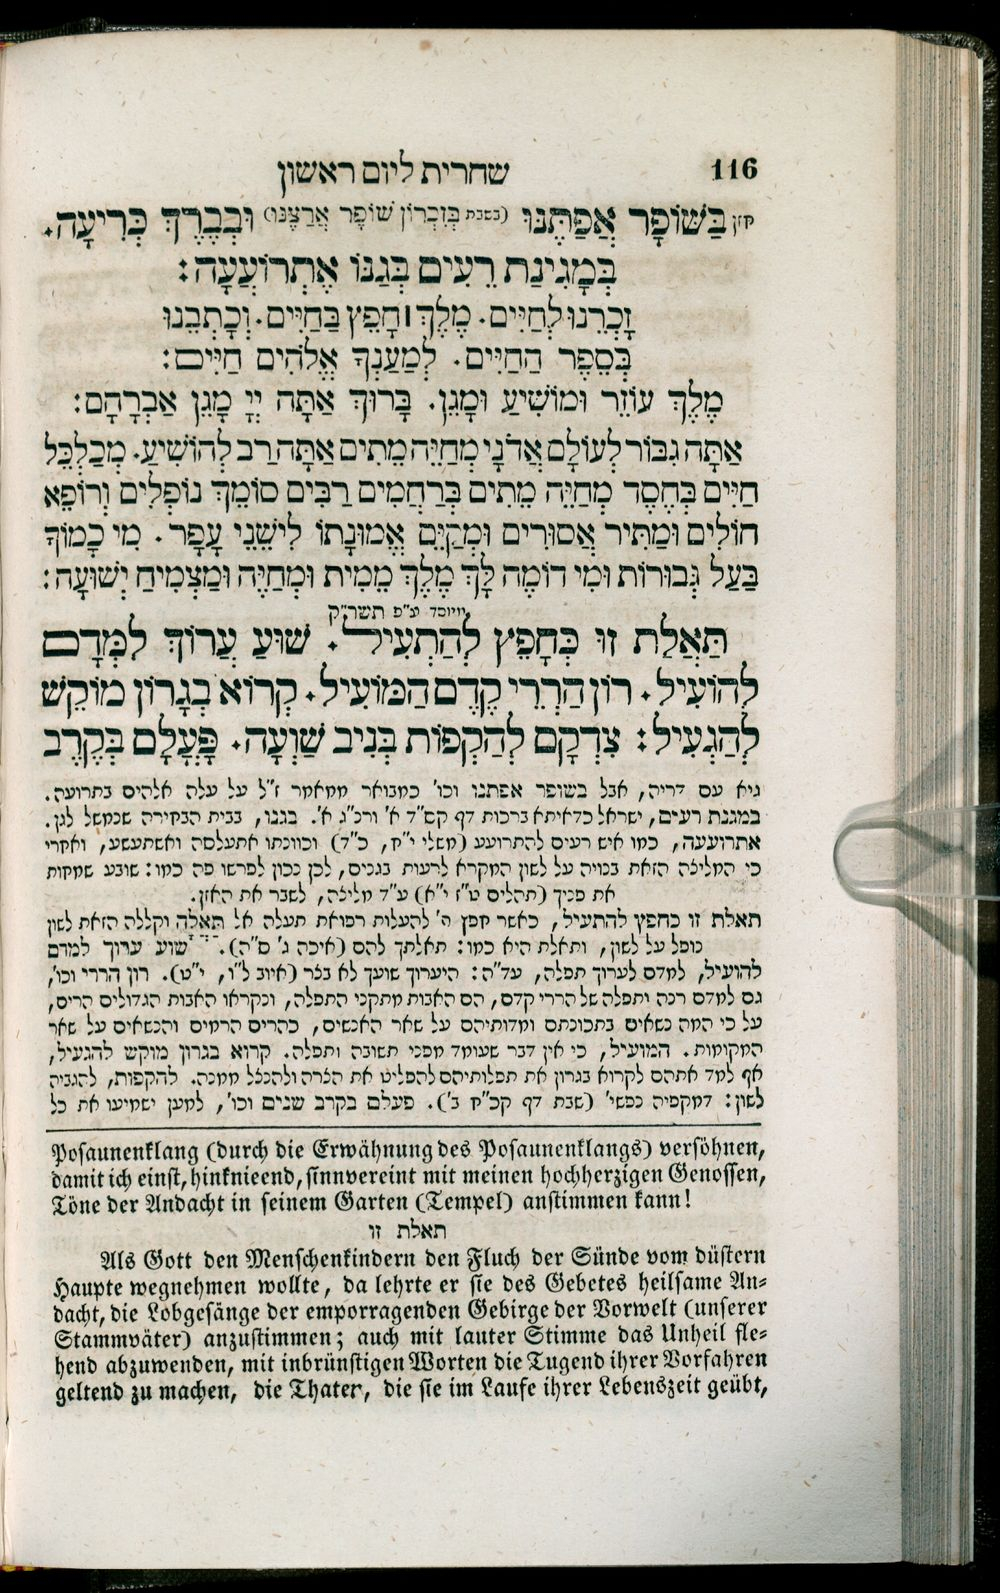 116
שחרית ליום ראשון
חזן בַּשּׁוֹפָר אֲפַתֶּנּוּ (בשבת בְּזִכְרוֹן שׁוֹפָר אֲרַצֶּנּוּ) וּבְבֶרֶךְ כְּרִיעָה.
בְּמָגִינַת רֵעִים בְּגַנּוֹ אֶתְרוֹעֲעָה:
זָכְרֵנוּ לְחַיִּים. מֶלֶךְ ׀ חָפֵץ בַּחַיִּים. וְכָתְבֵנוּ
בְּסֵפֶר הַחַיִּים. לְמַעַנְךָ אֱלֹהִים חַיִּים:
מֶלֶךְ עוֹזֵר וּמוֹשִׁיעַ וּמָגֵן. בָּרוּךְ אַתָּה יְיָ מָגֵן אַבְרָהָם:
אַתָּה גִבּוֹר לְעוֹלָם אֲדֹנָי מְחַיֵּה מֵתִים אַתָּה רַב לְהוֹשִׁיעַ. מְכַלְכֵּל
חַיִּים בְּחֶסֶד מְחַיֵּה מֵתִים בְּרַחֲמִים רַבִּים סוֹמֵךְ נוֹפְלִים וְרוֹפֵא
חוֹלִים וּמַתִּיר אֲסוּרִים וּמְקַיֵּם אֱמוּנָתוֹ לִישֵׁנֵי עָפָר. מִי כָמוֹךָ
בַּעַל גְּבוּרוֹת וּמִי דוֹמֶה לָּךְ מֶלֶךְ מֵמִית וּמְחַיֶּה וּמַצְמִיחַ יְשׁוּעָה:
מיוסד ע״פ תשר״ק
תַּאֲלַת זוּ כְּחָפֵץ לְהַתְעִיל. שׁוּעַ עֲרוֹךְ לִמְּדָם
לְהוֹעִיל. רוֹן הַרְרֵי קֶדֶם הַמּוֹעִיל. קְרוֹא בְגָרוֹן מוֹקֵשׁ
לְהַגְעִיל: צִדְקָם לְהַקְפּוֹת בְּנִיב שַׁוְעָה. פָּעֳלָם בְּקֶרֶב
גיא עם דריה, אבל בשופר אפתנו וכו׳ כמבואר ממאמר ז״ל על עלה אלהים בתרועה.
במגנת רעים, ישראל כדאיתא ברכות דף קס״ד א׳ ורכ״ג א׳. בגנו, בבית הבחירה שנמשל לגן.
אתרועעה, כמו איש רעים להתרועע (משלי י״ח, כ״ד) וכוונתו אתעלסה ואשתעשע, ואחרי
כי המליצה הזאת בנויה על לשון המקרא לרעות בגנים, לכן נכון לפרשו פה כמו: שובע שמחות
את פניך (תהלים ט״ז י״א) ע״ד מליצה, לשבר את האזן.
תאלת זו כחפץ להתעיל, כאשר חפץ ה׳ להעלות רפואת תעלה אל תַּאֲלָה וקללה הזאת לשון
נופל על לשון, ותאלת היא כמו: תאלתך להם (איכה ג׳ ס״ה). שוע ערוך למדם
להועיל, למדם לערוך תפלה, עד״ה: היערוך שועך לא בצר (איוב ל״ו, י״ט). רון הררי וכו׳,
גם למדם רנה ותפלה של הררי קדם, הם האבות מתקני התפלה, ונקראו האבות הגדולים הרים,
על כי המה נשאים בתכונתם ומדותיהם על שאר האנשים, כהרים הרמים והנשאים על שאר
המקומות. המועיל, כי אין דבר שעומד מפני תשובה ותפלה. קרוא בגרון מוקש להגעיל,
אף למד אתהם לקרוא בגרון את תפלותיהם להפליט את הצרה ולהנצל ממנה. להקפות, להגביה
לשון: דמקפיה נפשי׳ (שבת דף קכ״ח ב׳). פעלם בקרב שנים וכו׳, למען ישמיעו את כל
Posaunenklang (durch die Erwähnung des Posaunenklangs) versöhnen,
damit ich einst, hinknieend, sinnvereint mit meinen hochherzigen Genossen,
Töne der Andacht in seinem Garten (Tempel) anstimmen kann!
תאלת זו
Als Gott den Menschenkindern den Fluch der Sünde vom düstern
Haupte wegnehmen wollte, da lehrte er sie des Gebetes heilsame An=
dacht, die Lobgesänge der emporragenden Gebirge der Vorwelt (unserer
Stammväter) anzustimmen; auch mit lauter Stimme das Unheil fle=
hend abzuwenden, mit inbrünstigen Worten die Tugend ihrer Vorfahren
geltend zu machen, die Thater, die sie im Laufe ihrer Lebenszeit geübt,